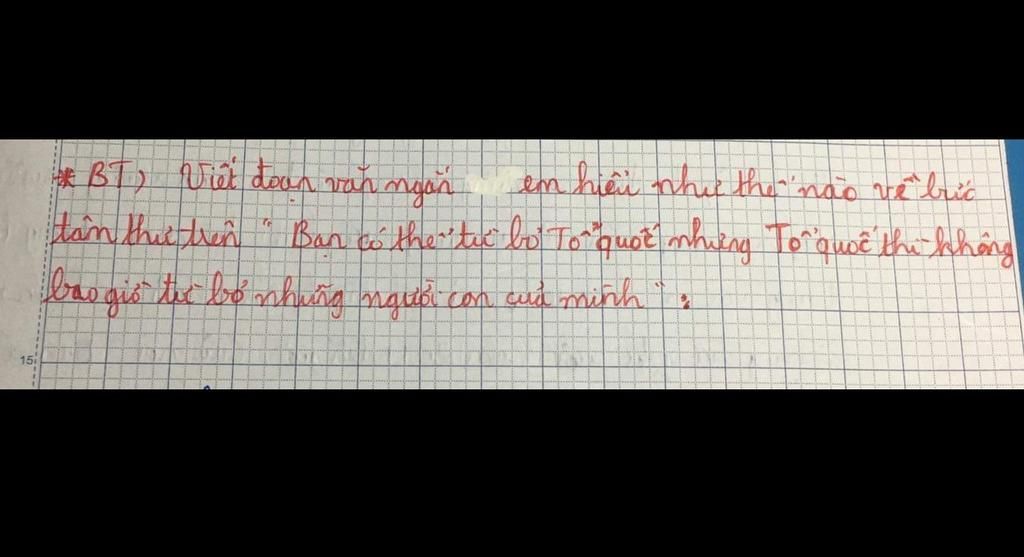 * BT) Viết đoạn văn ngắn em hiểu như thế nào về bức
tâm thư trên " Bạn có thể từ bỏ Tổ quốc nhưng Tổ quốc thì không
bao giờ từ bỏ những người con của mình " :
15